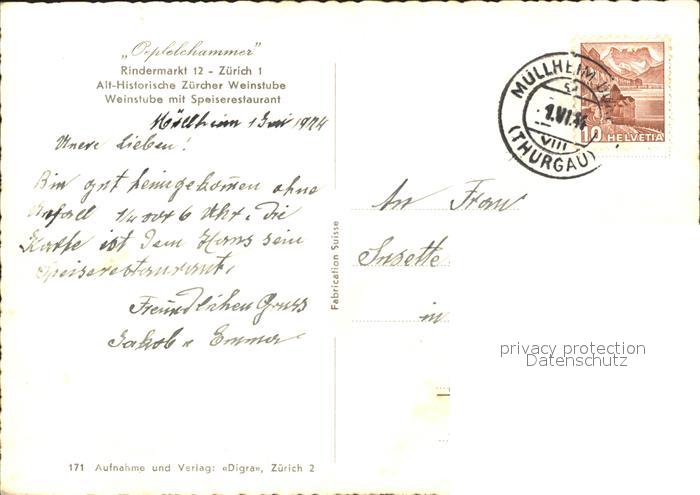 „Oepfelchammer"
Rindermarkt 12 - Zürich 1
Alt-Historische Zürcher Weinstube
Weinstube mit Speiserestaurant
Müllheim 1 Juni 1944
Unere Lieben!
Bin gut heimgekommen ohne
Unfall 1/4 vor 6 Uhr. Die
Karte ist dem Hans sein
Speiserestaurant.
Freundlichen Gruss
Jakob u Emma
171 Aufnahme und Verlag: «Digra», Zürich 2
Fabrication Suisse
MÜLLHEIM
1.VI.44
VIII
(THURGAU)
10 HELVETIA
An Frau
Susette
in
privacy protection
Datenschutz